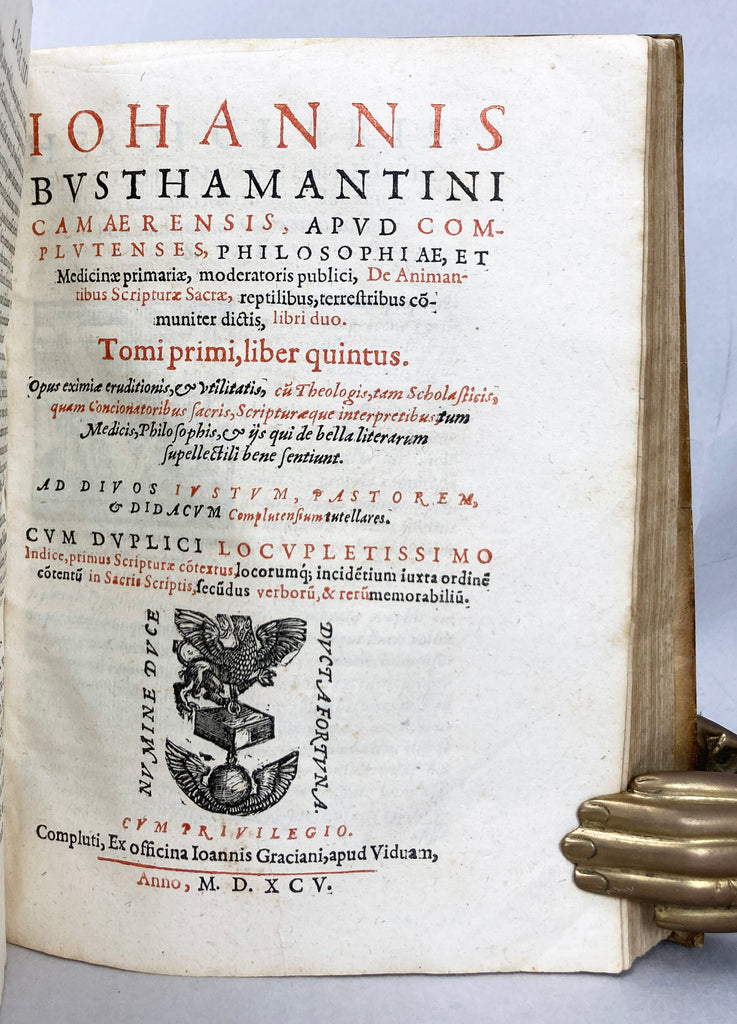 IOHANNIS
BVSTHAMANTINI
CAMAERENSIS, APVD COM-
PLVTENSES, PHILOSOPHIAE, ET
Medicinæ primariæ, moderatoris publici, De Animan-
tibus Scripturæ Sacræ, reptilibus, terrestribus cõ-
muniter dictis, libri duo.
Tomi primi, liber quintus.
Opus eximiæ eruditionis, & vtilitatis, cũ Theologis, tam Scholasticis,
quam Concionatoribus sacris, Scripturæque interpretibus tum
Medicis, Philosophis, & ijs qui de bella literarum
supellectili bene sentiunt.
AD DIVOS IVSTVM, PASTOREM,
& DIDACVM Complutensium tutellares.
CVM DVPLICI LOCVPLETISSIMO
Indice, primus Scripturæ cõtextus, locorumq; incidẽtium iuxta ordinẽ
cõtentũ in Sacris Scriptis, secũdus verborũ, & rerũ memorabiliũ.
NVMINE DVCE
DVCTA FORTVNA.
CVM PRIVILEGIO.
Compluti, Ex officina Ioannis Graciani, apud Viduam,
Anno, M. D. XCV.